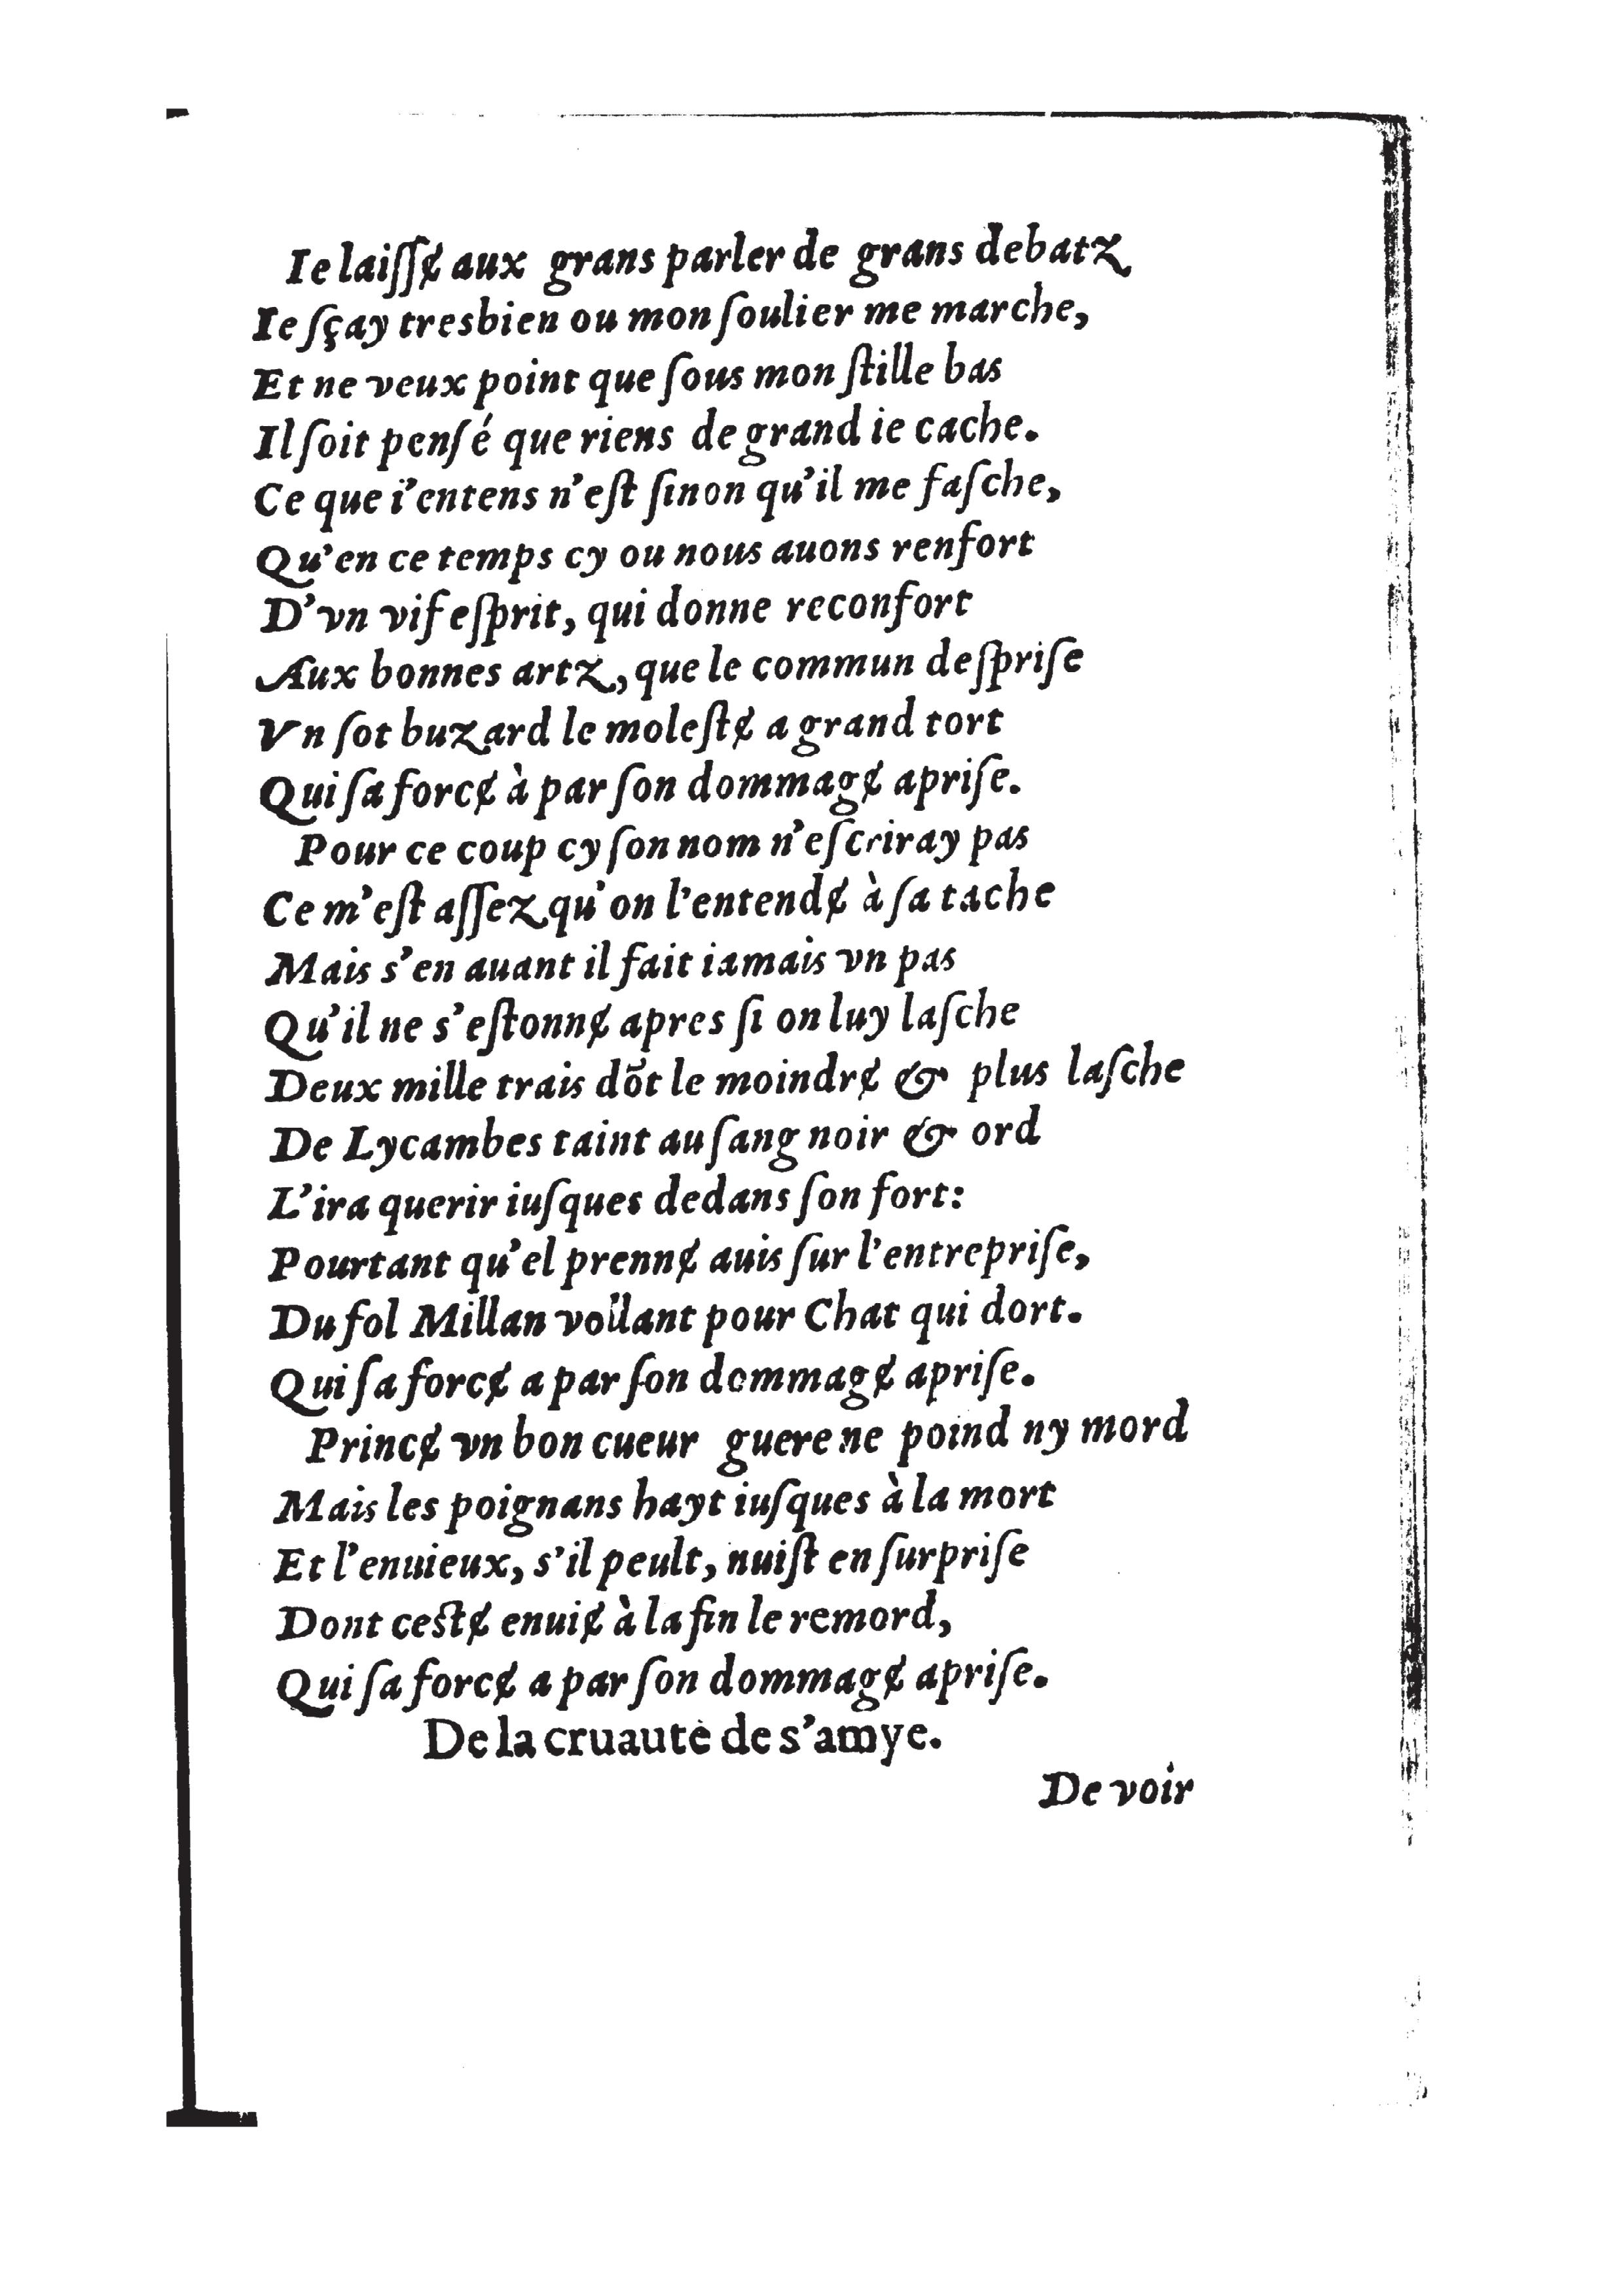 Ie laiſſɇ aux grans parler de grans debatz
Ie ſçay tresbien ou mon ſoulier me marche,
Et ne veux point que ſous mon ſtille bas
Il ſoit penſé que riens de grand ie cache.
Ce que i'entens n'eſt ſinon qu'il me faſche,
Qu'en ce temps cy ou nous auons renfort
D'vn vif eſprit, qui donne reconfort
Aux bonnes artz, que le commun deſpriſe
Vn ſot buzard le moleſtɇ a grand tort
Qui ſa forcɇ à par ſon dommagɇ apriſe.
Pour ce coup cy ſon nom n'eſcriray pas
Ce m'eſt aſſez qu'on l'entendɇ à ſa tache
Mais s'en auant il fait iamais vn pas
Qu'il ne s'eſtonnɇ apres ſi on luy laſche
Deux mille trais dõt le moindrɇ & plus laſche
De Lycambes taint au ſang noir & ord
L'ira querir iuſques dedans ſon fort:
Pourtant qu'el prennɇ auis ſur l'entrepriſe,
Du fol Millan vollant pour Chat qui dort.
Qui ſa forcɇ a par ſon dommagɇ apriſe.
Princɇ vn bon cueur guere ne poind ny mord
Mais les poignans hayt iuſques à la mort
Et l'enuieux, s'il peult, nuiſt en ſurpriſe
Dont ceſtɇ enuiɇ à la fin le remord,
Qui ſa forcɇ a par ſon dommagɇ apriſe.
De la cruauté de s'amye.
De voir